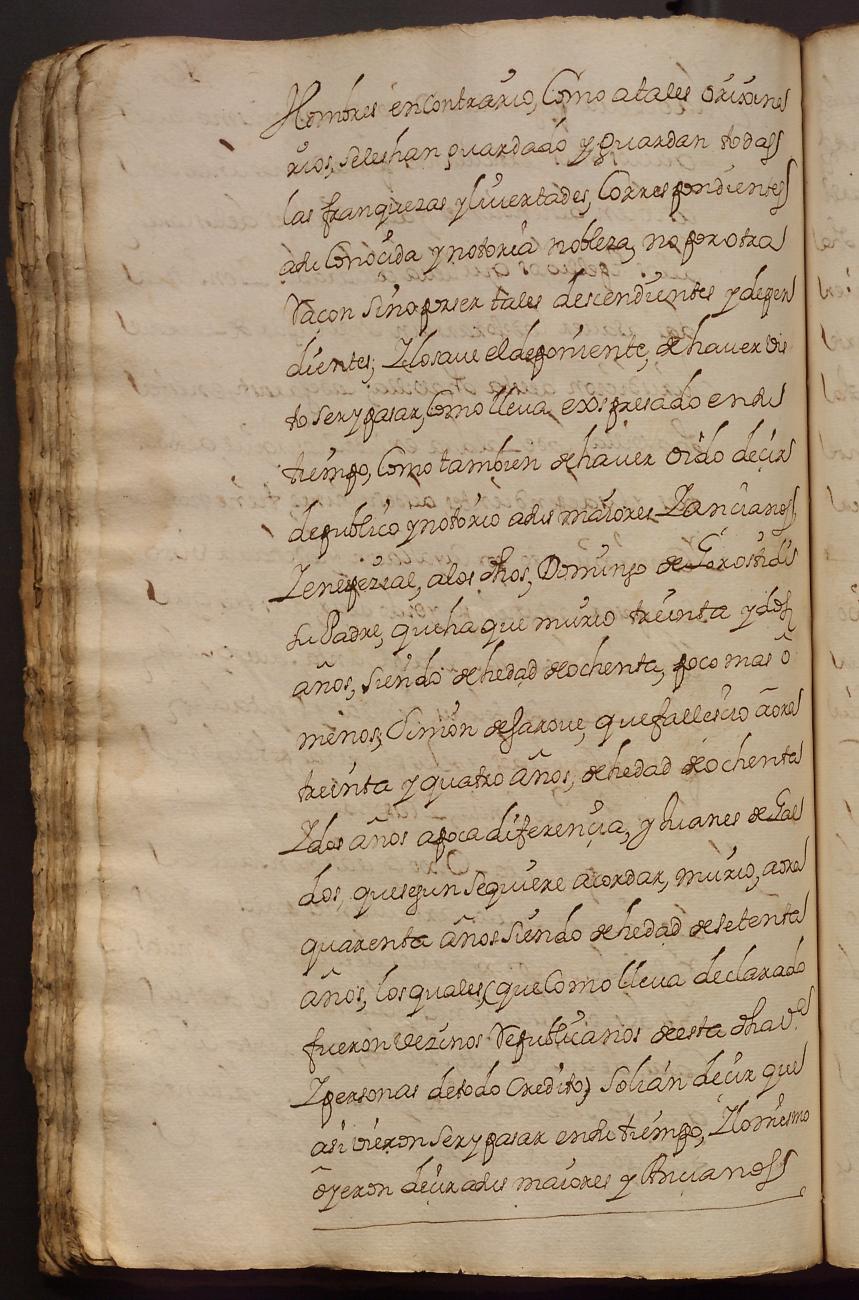 Hombres en contrario, Como atales orixina
rios, seleshan guardado y Guardan todas
las franquezas y livertades, Correspondientes
asu Conocida y notoria nobleza, no por otra
Raçon sino por ser tales descendientes y depen
dientes; Y lo save el deponiente, de haver vis
to ser y pasar, Como lleva expresado en su
tiempo, Como tambien de haver oido decir
de publico y notorio a sus maiores Y ancianos,
Y en espezeal, a los dhos, Domingo de Gorostidi
su Padre, que ha que murio treinta y dos
años, siendo de hedad de ochenta, poco mas ô
menos; Simon de Jarove, que fallescio aora
treinta y quatro años, de hedad de ochenta
Y dos años a poca diferencia, y Juanes de Gal
dos, que segun se quiere acordar, murio, aora
quarenta años siendo de hedad de setenta
años, los quales, (que Como lleva declarado
fueron vezinos Republicanos de esta dha v.ª
Y personas de todo Credito) solian decir que
asi vieron ser y pasar en su tiempo, Y lo mesmo
oyeron decir a sus maiores y Ancianos